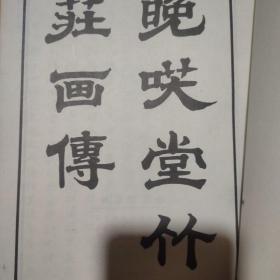 晚唉堂竹
莊画傳